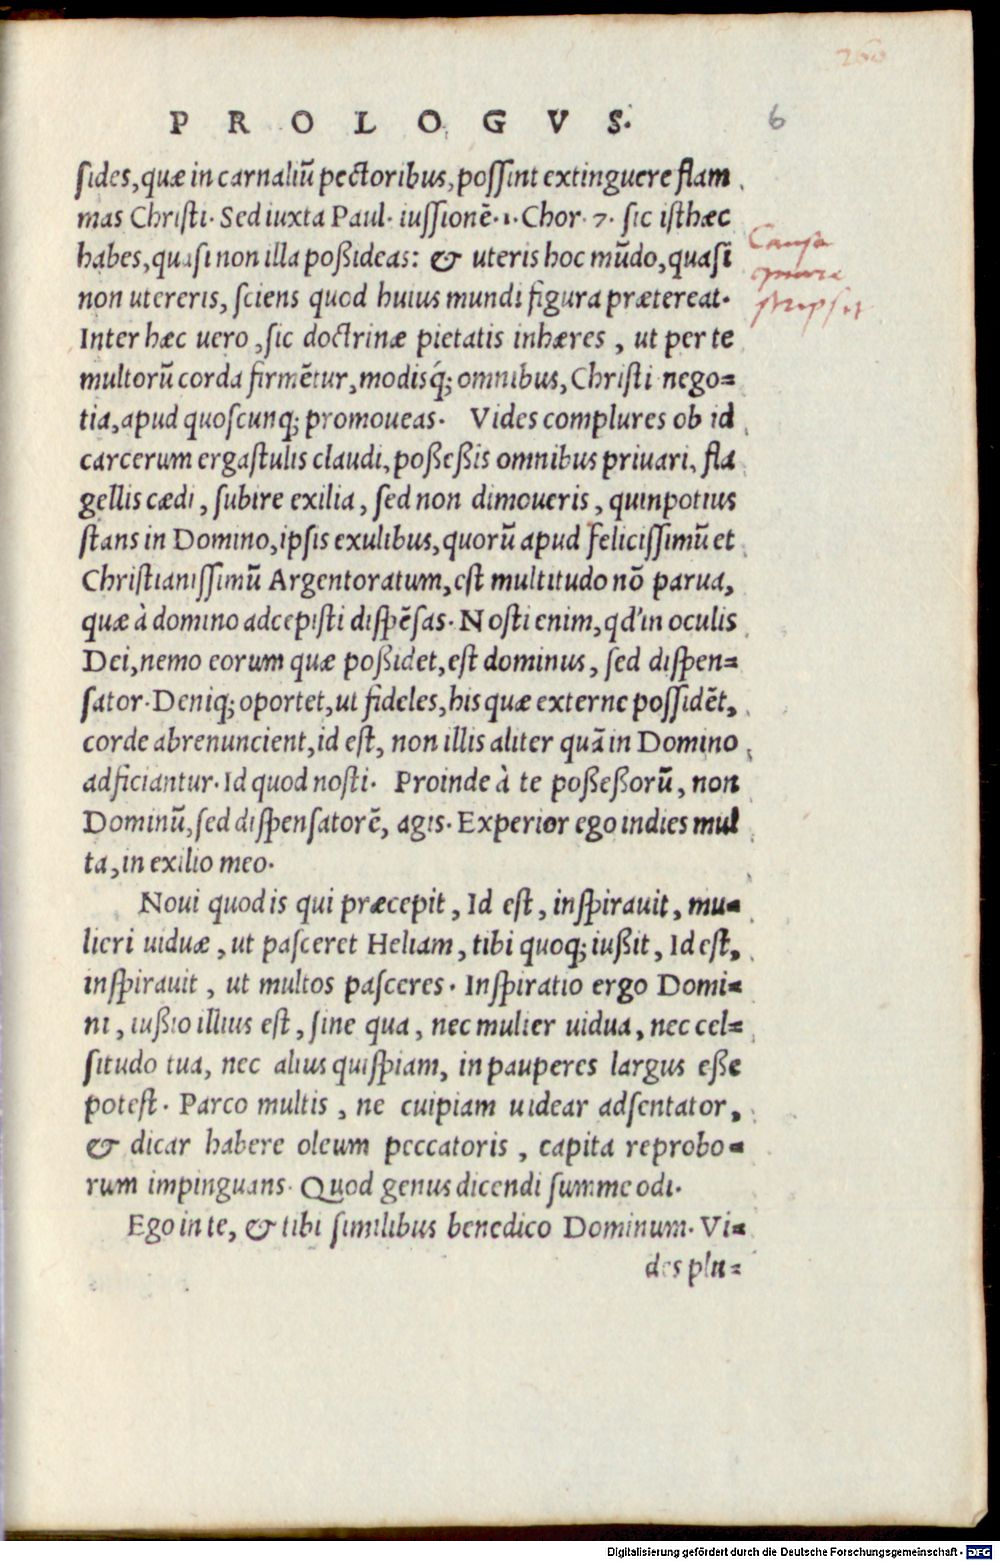 260
PROLOGVS.
6
sides, quæ in carnaliũ pectoribus, possint extinguere flam
mas Christi. Sed iuxta Paul. iussionẽ. 1. Chor. 7. sic isthæc
habes, quasi non illa poßideas: & uteris hoc mũdo, quasi
non utereris, sciens quod huius mundi figura prætereat.
Inter hæc uero, sic doctrinæ pietatis inhæres, ut per te
multorũ corda firmẽtur, modisq́; omnibus, Christi nego=
tia, apud quoscunq; promoueas. Vides complures ob id
carcerum ergastulis claudi, poßeßis omnibus priuari, fla
gellis cædi, subire exilia, sed non dimoueris, quinpotius
stans in Domino, ipsis exulibus, quorũ apud felicissimũ et
Christianissimũ Argentoratum, est multitudo nõ parua,
quæ à domino adcepisti dispẽsas. Nosti enim, qd' in oculis
Dei, nemo eorum quæ poßidet, est dominus, sed dispen=
sator. Deniq; oportet, ut fideles, his quæ externe possidẽt,
corde abrenuncient, id est, non illis aliter quã in Domino
adficiantur. Id quod nosti. Proinde à te poßeßorũ, non
Dominũ, sed dispensatorẽ, agis. Experior ego indies mul
ta, in exilio meo.
Noui quod is qui præcepit, Id est, inspirauit, mu=
lieri uiduæ, ut pasceret Heliam, tibi quoq; iußit, Id est,
inspirauit, ut multos pasceres. Inspiratio ergo Domi=
ni, iußio illius est, sine qua, nec mulier uidua, nec cel=
situdo tua, nec alius quispiam, in pauperes largus eße
potest. Parco multis, ne cuipiam uidear adsentator,
& dicar habere oleum peccatoris, capita reprobo=
rum impinguans. Quod genus dicendi summe odi.
Ego in te, & tibi similibus benedico Dominum. Vi=
des plu=
Causa
quare
scripsit
Digitalisierung gefördert durch die Deutsche Forschungsgemeinschaft - DFG